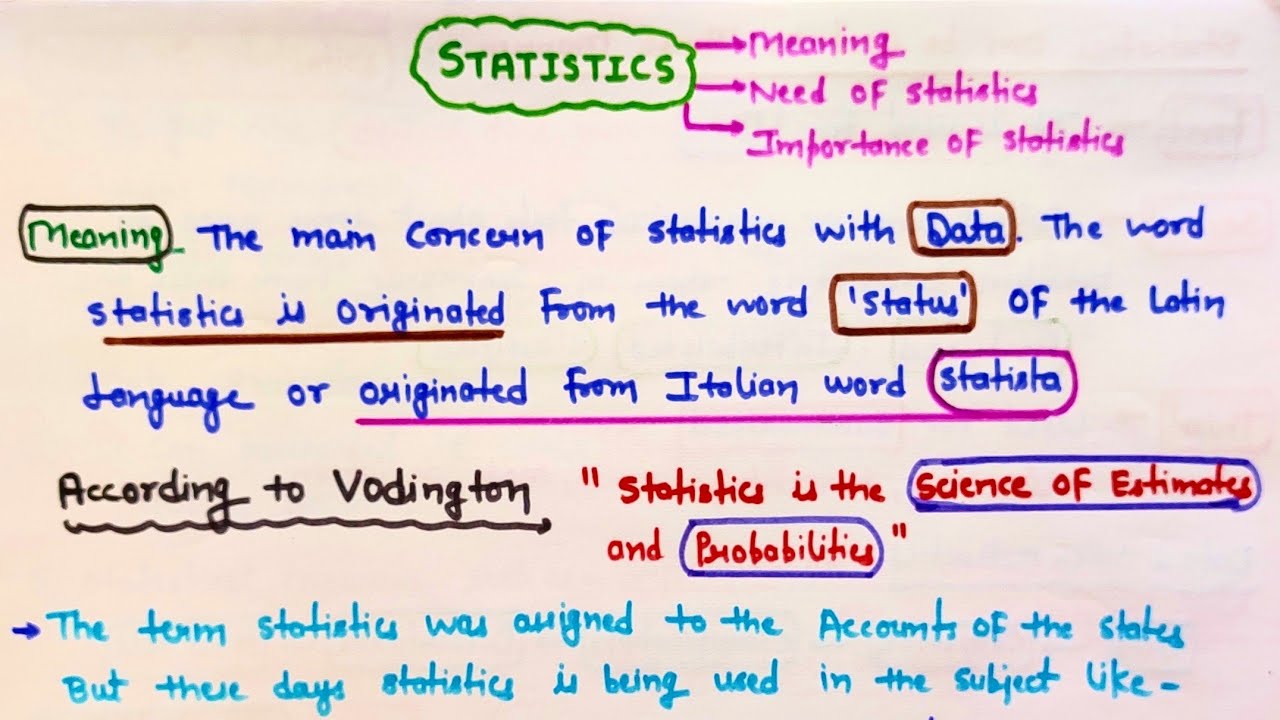 STATISTICS
Meaning
Need of statistics
Importance of statistics
Meaning - The main concern of statistics with Data. The word
statistics is originated from the word 'status' of the Latin
language or originated from Italian word statista
According to Vodington " Statistics is the Science of Estimates
and Probabilities "
→ The term statistics was assigned to the Accounts of the states
But these days statistics is being used in the subject like -